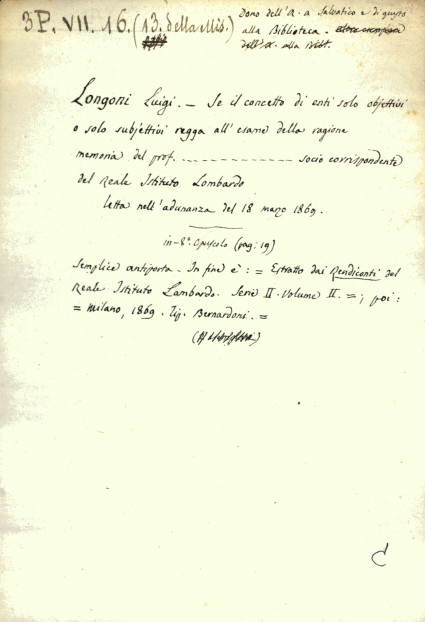 3P. VII. 16. (13. della Mis.)
Dono dell'A. a Salvatico e di questo
alla Biblioteca.
dell'A. alla Bibl.
Longoni Luigi. — Se il concetto di enti solo objettivi
o solo subjettivi regga all'esame della ragione
memoria del prof. - - - - - - - - - - - - socio corrispondente
del Reale Istituto Lombardo
letta nell'adunanza del 18 marzo 1869.
in-8.° Opuscolo (pag: 19)
Semplice antiporta. In fine è: = Estratto dai Rendiconti del
Reale Istituto Lombardo. Serie II. Volume II. =; poi:
= Milano, 1869. Tip. Bernardoni. =
C